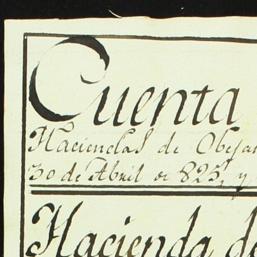 Cuenta
Haciendas de Obejas
30 de Abril de 825, y
Hacienda de